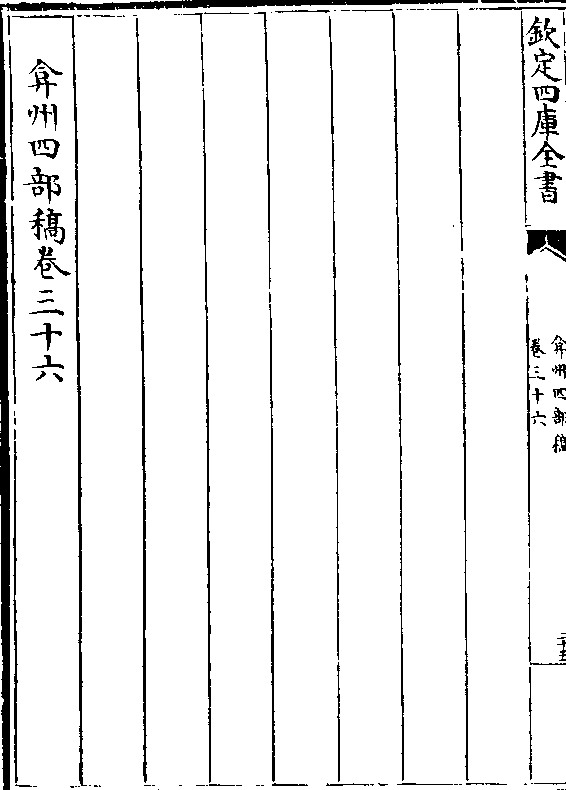 欽定四庫全書
弇州四部稿
卷三十六
弇州四部稿卷三十六